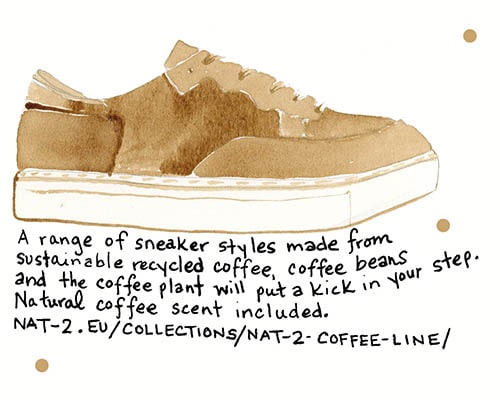 A range of sneaker styles made from
sustainable recycled coffee, coffee beans
and the coffee plant will put a kick in your step.
Natural coffee scent included.
NAT-2.EU/COLLECTIONS/NAT-2-COFFEE-LINE/